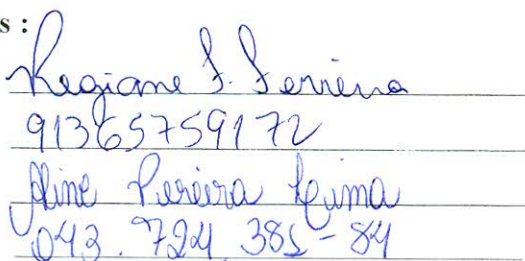 s :
Regiane F. Ferreira
91365759172
Aline Pereira Lima
043.724.385-84